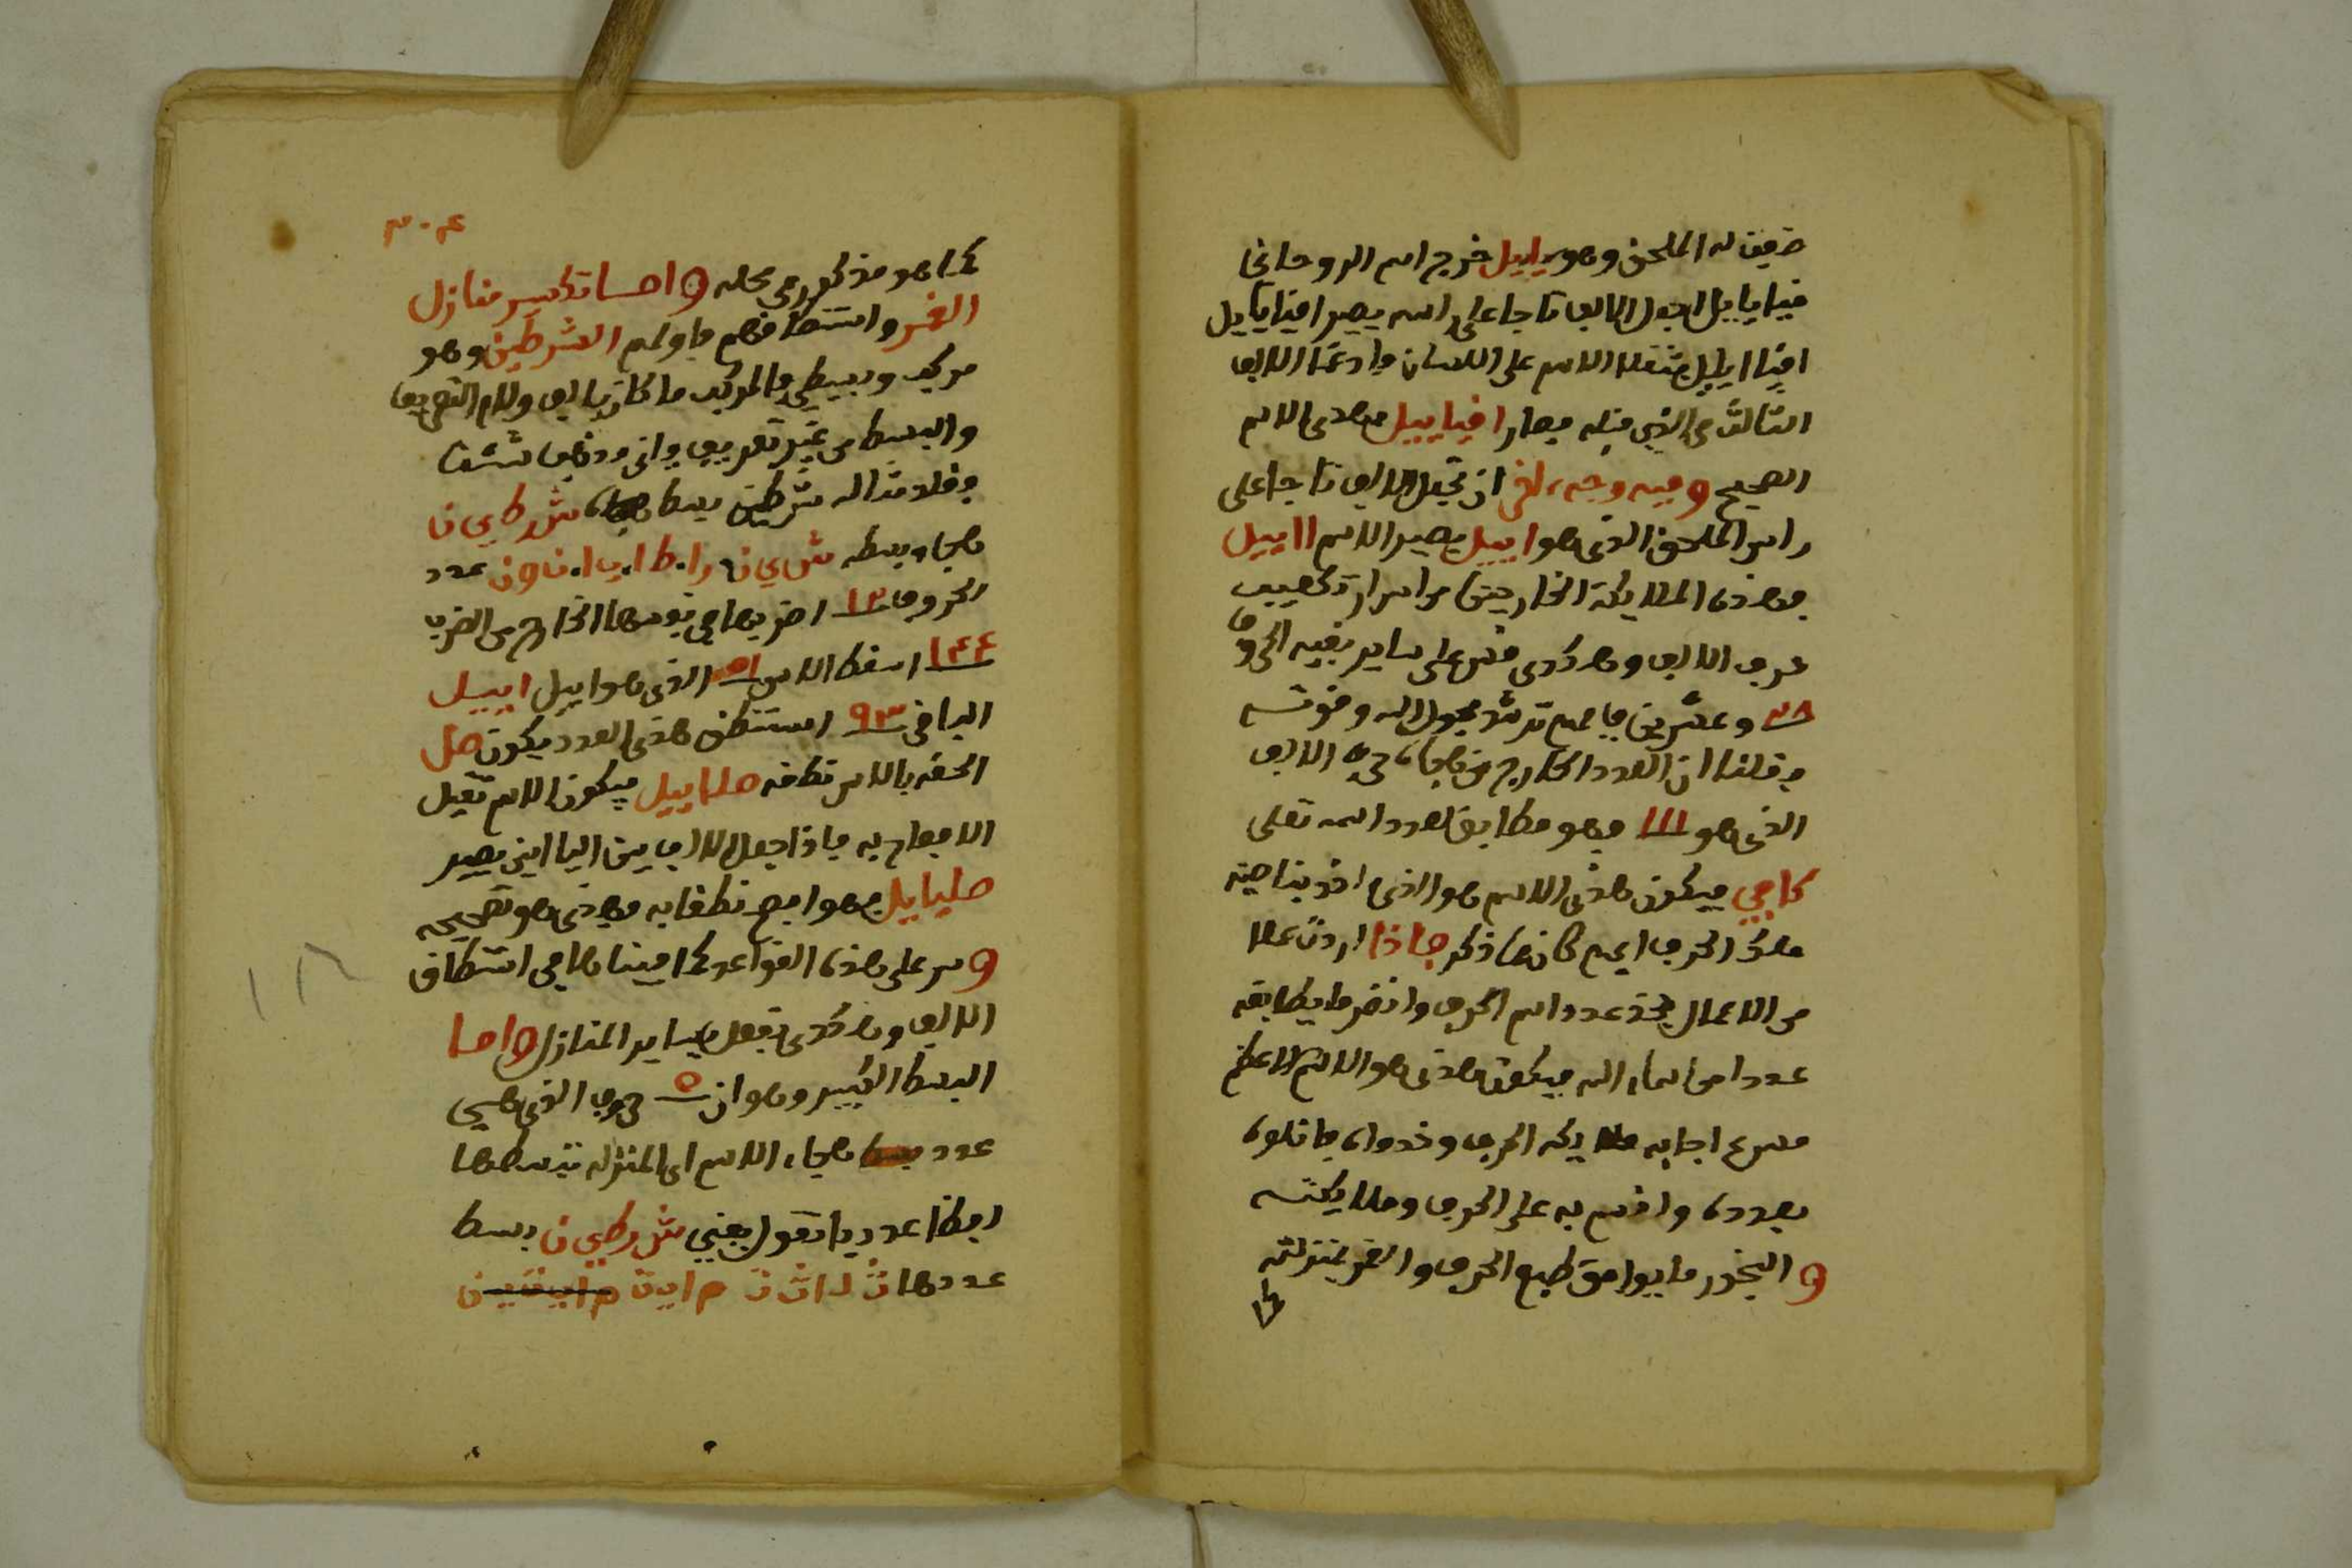 ضيف له الملحق وهو يابيل خرج اسم الروحاني
فيايابيل اجعل الالف تاجا على راسه يصير افيايابيل
الثالث في الذي قبله فصار افياييل فهذى الاسم
الصحيح وفيه وجه اخر ان تجعل الالف تاجا على
راس الملحق الذى هو اييل يصير الاسم ااييل
فهذه الملايكة الخارجين من اسرار تكعيب
حرف الالف وهاكذى قس على ساير بقية الحروف
٢٨ وعشرين فافهم ترشد بحول الله وقوته
وقلنا ان العدد الخارج من هجاء حرف الالف
الذى هو ١١١ فهو مطابق لعدد اسمه تعلى
كافي فيكون هذى الاسم هو الذى اخذ بناصية
ملك الحرف ايهم كان كما ذكر فاذا اردت عملا
من الاعمال فخذ عدد اسم الحرف وانظر ما يطابقه
عددا من اسماء الله فيكون هذى هو الاسم الاعظم
فسرع اجابه ملايكه الحرف وخدوامه فاتلوه
بعدده واقسم به على الحرف وملايكته
والبخور ما يوافق طبع الحرف والقمر بمنزلته
كما
٣٠٤
كما هو مذكور في محله واما تكسير منازل
القمر واستنطاقهم فاولهم الشرطين وهو
مركب وبسيط فالمركب ما كان بالف ولام التعريف
والبسط من غير تعريف وانى وفيها شئت
وقلا مثاله شرطين بسط هجاء ش ر ط ي ن
هجا وبسطه ش ي ن ر ا ط ا ي ا ن و ن عدد
الحروف ١٢ اضربها في نفسها الخارج من الضرب
١٤٤ اسقط الاس ٥١ الذى هو اييل اييل
الباقي ٩٣ استنطق هذى العدد يكون صل
الحقه بالاس نطقه صلااييل فيكون الاسم ثقيل
الا فصاح به فاذا جعل الالف بين اليااين يصير
صليايل فهو افصح نطقا به فهذى هو تصحيحه
وسر على هذه القواعد كما بينا ها في استنطاق
الالف وهاكذى تفعل بساير المنازل واما
البسط الكبير وهو ان ٥ حروف الذى هي
عدد هجاء الاسم اى المنزله تبسطها
ايضا عدديا تقول يعني ش ر ط ي ن بسط